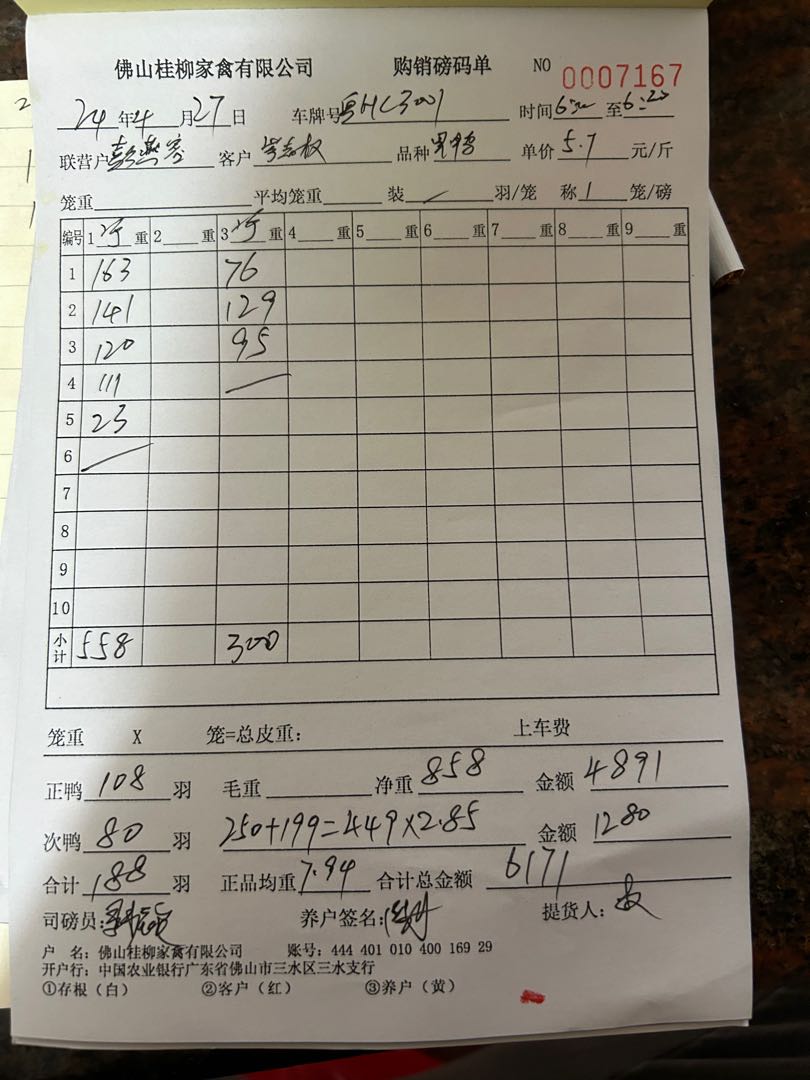 佛山桂柳家禽有限公司 购销磅码单 NO 0007167
24年4月27日 车牌号粤HC3001 时间6:00至6:20
联营户彭燕容 客户 权 品种 单价5.7元/斤
笼重 平均笼重 装/羽/笼 称1笼/磅
编号 1 净 重 2 重 3 净 重 4 重 5 重 6 重 7 重 8 重 9 重
1 163 76
2 141 129
3 120 95
4 111
5 23
6
7
8
9
10
小计 558 300
笼重 X 笼=总皮重: 上车费
正鸭108羽 毛重 净重858 金额4891
次鸭80羽 250+199=449×2.85 金额1280
合计188羽 正品均重7.94 合计总金额6171
司磅员: 养户签名: 提货人:
户 名: 佛山桂柳家禽有限公司 账号: 444 401 010 400 169 29
开户行: 中国农业银行广东省佛山市三水区三水支行
①存根(白) ②客户(红) ③养户(黄)